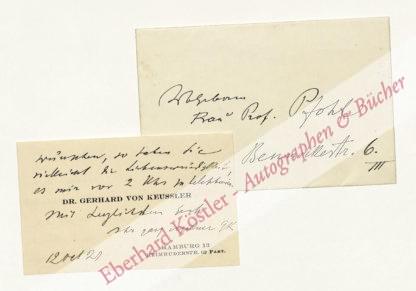 Wolgeboren
Frau Prof. Pfohl
Benedictstr. 6.
III
wünschen, so haben Sie
vielleicht die Liebenswürdigkeit,
es mir vor 2 Uhr zu telephonieren.
DR. GERHARD VON KEUSSLER
Mit
Ihr ganz ergebener GK
HAMBURG 13
HEIMHUDERSTR. 62 PART.
12 Oct 20
Eberhard Köstler - Autographen & Bücher